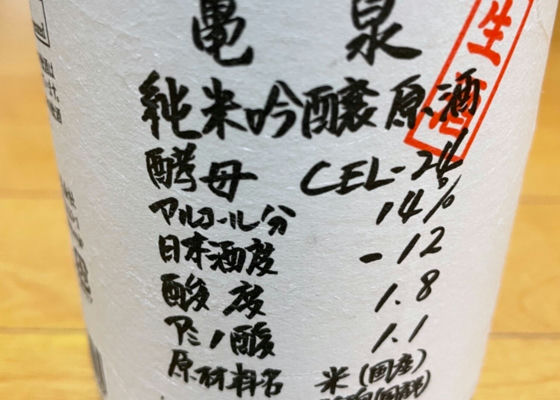 亀泉
純米吟醸原酒
生酒
酵母 CEL-24
アルコール分 14%
日本酒度 -12
酸度 1.8
アミノ酸 1.1
原材料名 米(国産)